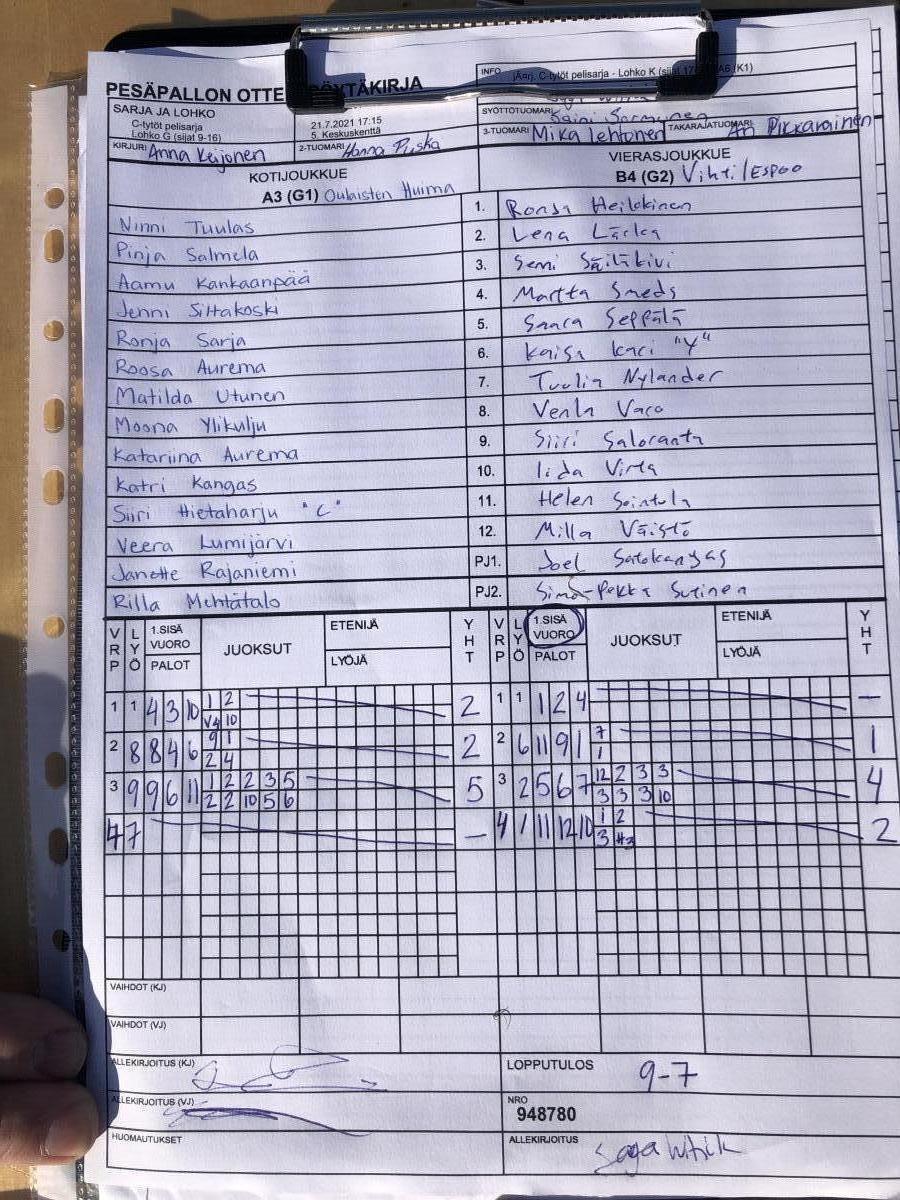 PESÄPALLON OTTE ÖYTÄKIRJA
INFO jÄarj. C-tytöt pelisarja - Lohko K (sijat 17 A6 (K1)
SARJA JA LOHKO
C-tytöt pelisarja
Lohko G (sijat 9-16)
21.7.2021 17:15
5. Keskuskenttä
SYÖTTÖTUOMARI
KIRJURI Anna Keijonen
2-TUOMARI Hanna
3-TUOMARI Mika Lehtonen
TAKARAJATUOMARI Ari Pikkarainen
KOTIJOUKKUE
A3 (G1) Oulaisten Huima
VIERASJOUKKUE
B4 (G2) Vihti/Espoo
Ninni Tuulas 1. Ronja Heikkinen
Pinja Salmela 2. Vena
Aamu Kankaanpää 3. Semi Säiläkivi
Jenni Siltakoski 4. Martta Smeds
Ronja Sarja 5. Saara Seppälä
Roosa Aurema 6. Kaisa Kari "Y"
Matilda Utunen 7. Tuulia Nylander
Moona Ylikulju 8. Venla Varo
Katariina Aurema 9. Siiri Saloranta
Katri Kangas 10. Iida Virta
Siiri Hietaharju "C" 11. Helen Sointula
Veera Lumijärvi 12. Milla Väistö
Janette Rajaniemi PJ1. Joel Satokangas
Rilla Mehtätalo PJ2. Simo-Pekka Sutinen
VRP LYÖ 1.SISÄ VUORO PALOT JUOKSUT ETENIJÄ LYÖJÄ YHT VRP LYÖ 1.SISÄ VUORO PALOT JUOKSUT ETENIJÄ LYÖJÄ YHT
1 1 4 3 10 1 2 2 1 1 1 2 4 –
V4 10
2 8 8 4 6 9 1 2 2 6 11 9 1 7 1
2 4 1
3 9 9 6 11 1 2 2 3 5 5 3 2 5 6 7 12 2 3 3 4
2 2 10 5 6 3 3 3 10
4 7 – 4 1 11 12 10 1 2 2
3
VAIHDOT (KJ)
VAIHDOT (VJ)
ALLEKIRJOITUS (KJ)
LOPPUTULOS 9-7
ALLEKIRJOITUS (VJ)
NRO
948780
HUOMAUTUKSET
ALLEKIRJOITUS Saga